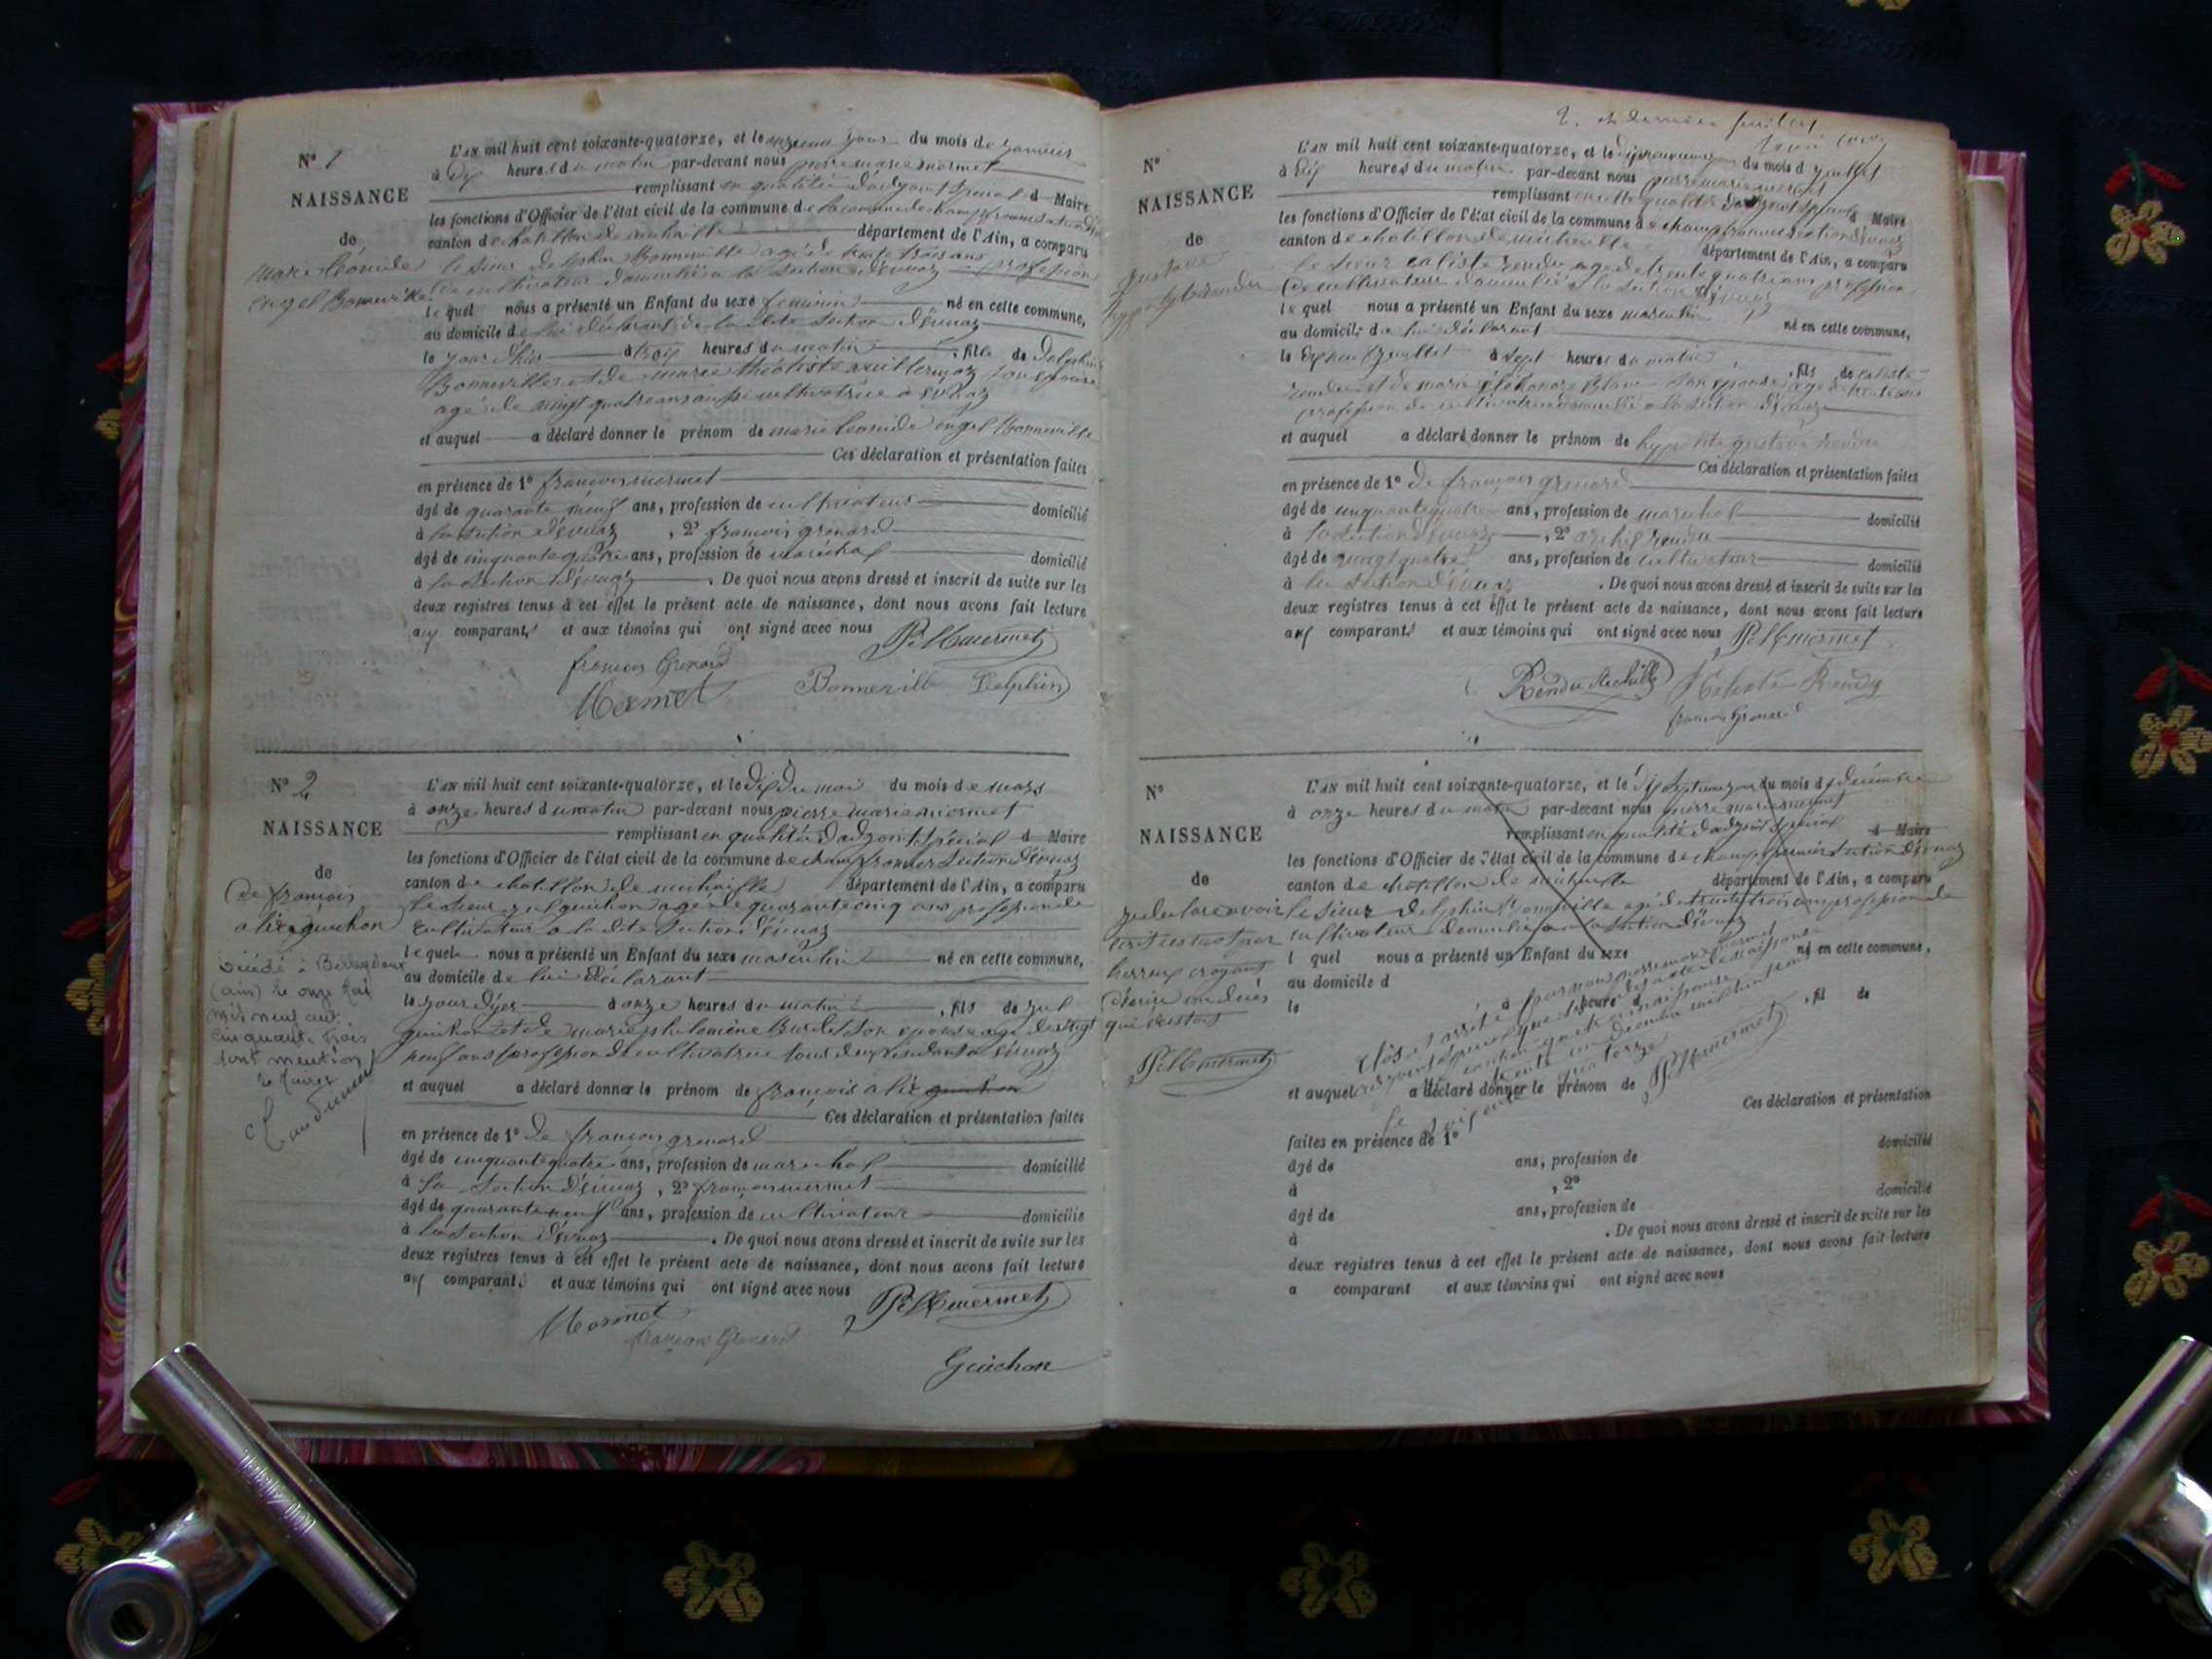 N° 1
NAISSANCE
de
marie léonide
engel Bonneville
L'AN mil huit cent soixante-quatorze, et le onzieme jour du mois de janvier
à dix heures du matin par-devant nous pierre marie mermet
remplissant en qualitée d'adjoint spécial d Maire
les fonctions d'Officier de l'état civil de la commune de la commune de champfromier section d'
canton de chatillon de michaille département de l'Ain, a comparu
le sieur delphin Bonneville agé de trente trois ans profession
de cultivateur domicilié a la section d'évuaz
lequel nous a présenté un Enfant du sexe feminin né en cette commune,
au domicile de lui déclarant de la dite section d'évuaz
le jour d'hier à trois heures du matin, fille de delphin
Bonneville et de marie théotiste vuillermoz son épouse
agé de vingt quatre ans aussi cultivatrice a évuaz
et auquel a déclaré donner le prénom de marie leonide engel Bonneville
Ces déclaration et présentation faites
en présence de 1° françois mermet
âgé de quarante neuf ans, profession de cultivateur domicilié
à la section d'évuaz, 2° françois grenard
âgé de cinquante quatre ans, profession de maréchal domicilié
à la section d'évuaz. De quoi nous avons dressé et inscrit de suite sur les
deux registres tenus à cet effet le présent acte de naissance, dont nous avons fait lecture
aux comparants et aux témoins qui ont signé avec nous PMmermet
françois Grenard
Mermet Bonneville Delphin
N° 2
NAISSANCE
de
de françois
alix guichon
décédé à Bellegarde
(ain) le onze Mai
mil neuf cent
cinquante trois
dont mention
le Maire
L'AN mil huit cent soixante-quatorze, et le dix du moi du mois de mars
à onze heures du matin par-devant nous pierre marie mermet
remplissant en qualitée d'adjoint spécial d Maire
les fonctions d'Officier de l'état civil de la commune de champfromier section d'évuaz
canton de chatillon de michaille département de l'Ain, a comparu
le sieur jul guichon agé de quarante cinq ans profession de
cultivateur a la dite section d'évuaz
lequel nous a présenté un Enfant du sexe masculin né en cette commune,
au domicile de lui déclarant
le jour d'yer à onze heures du matin, fils de jul
guichon et de marie philomène Burdet son épouse agé de vingt
neuf ans profession de cultivatrice tous deux résidant a évuaz
et auquel a déclaré donner le prénom de françois alix guichon
Ces déclaration et présentation faites
en présence de 1° de françois grenard
âgé de cinquante quatre ans, profession de maréchal domicilié
à la section d'évuaz, 2° françois mermet
âgé de quarante neuf ans, profession de cultivateur domicilié
à la section d'évuaz. De quoi nous avons dressé et inscrit de suite sur les
deux registres tenus à cet effet le présent acte de naissance, dont nous avons fait lecture
aux comparant et aux témoins qui ont signé avec nous PMmermet
Mermet
françois Grenard
Guichon
2. et dernier feuillet
N°
NAISSANCE
de
gustave
L'AN mil huit cent soixante-quatorze, et le dixneuvieme du mois d juillet
à dix heures du matin par-devant nous pierre marie mermet
remplissant en cette qualitée d'adjoint spécial d Maire
les fonctions d'Officier de l'état civil de la commune de champfromier section d'évuaz
canton de chatillon de michaille département de l'Ain, a comparu
le sieur caliste rendu agé de trente quatre ans profession
de cultivateur domicilié a la section d'évuaz
lequel nous a présenté un Enfant du sexe masculin né en cette commune,
au domicile de lui déclarant
le dix neuf juillet à sept heures du matin, fils de caliste
rendu et de marie éléonore Blanc son épouse agé de trente ans
profession de cultivatrice domicilié a la section d'évuaz
et auquel a déclaré donner le prénom de hypolite gustave rendu
Ces déclaration et présentation faites
en présence de 1° de françois grenard
âgé de cinquante quatre ans, profession de maréchal domicilié
à la section d'évuaz, 2° achil rendu
âgé de vingt quatre ans, profession de cultivateur domicilié
à la section d'évuaz. De quoi nous avons dressé et inscrit de suite sur les
deux registres tenus à cet effet le présent acte de naissance, dont nous avons fait lecture
aux comparants et aux témoins qui ont signé avec nous PMmermet
Rendu Achille Caliste Rendu
françois Grenard
N°
NAISSANCE
de
je declare avoir
écrit cet act par
herreur croyant
d'écrire un décès
qui existait
PMmermet
L'AN mil huit cent soixante-quatorze, et le dix septieme jour du mois d décembre
à onze heures du matin par-devant nous pierre marie mermet
remplissant en qualité d'adjoint spécial d Maire
les fonctions d'Officier de l'état civil de la commune de champfromier section d'évuaz
canton de chatillon de michaille département de l'Ain, a comparu
le sieur delphin Bonneville agé de trente trois ans profession de
cultivateur domicilié a la section d'évuaz
l quel nous a présenté un Enfant du sexe né en cette commune,
au domicile d
le à heure d, fil de
clos et arrété par nous pierre marie mermet
adjoint spécial que
naissance
trente un décembre mil huit cent
soixante quatorze
PMmermet
et auquel a déclaré donner le prénom de
Ces déclaration et présentation
faites en présence de 1°
âgé de ans, profession de domicilié
à, 2°
âgé de ans, profession de domicilié
à. De quoi nous avons dressé et inscrit de suite sur les
deux registres tenus à cet effet le présent acte de naissance, dont nous avons fait lecture
a comparant et aux témoins qui ont signé avec nous